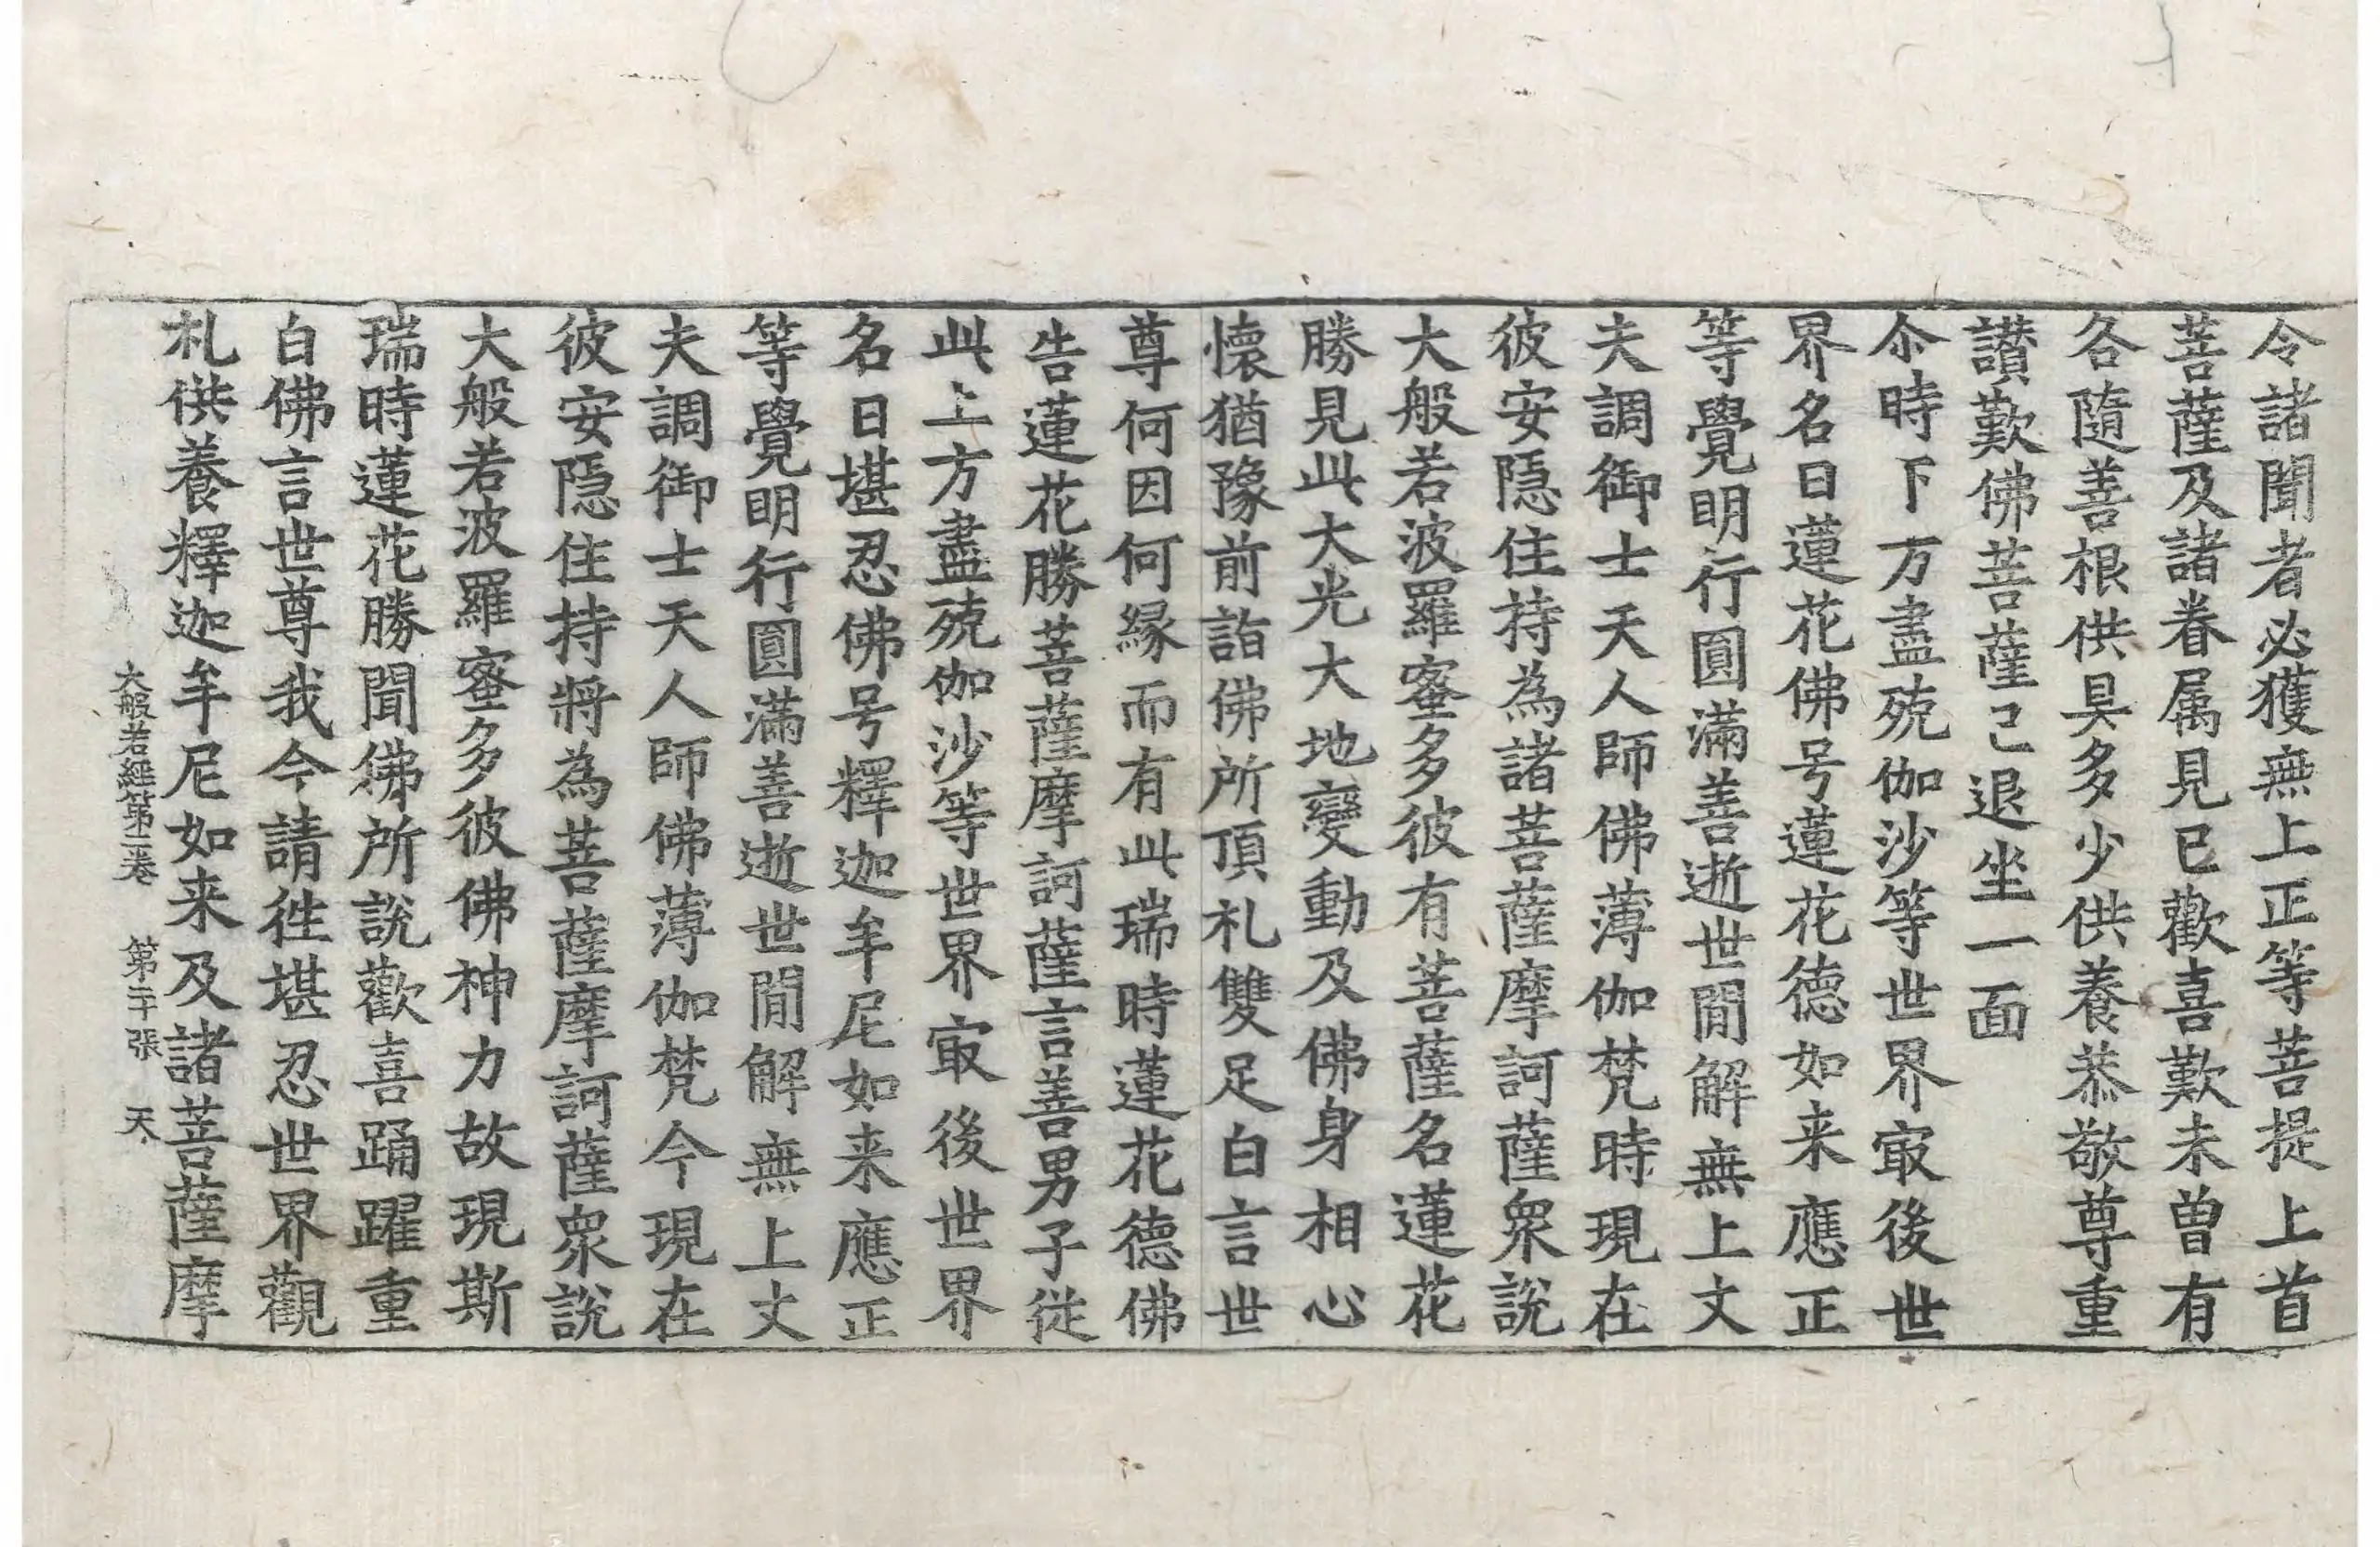 令諸聞者必獲無上正等菩提上首
菩薩及諸眷属見已歡喜歎未曽有
各隨善根供具多少供養恭敬尊重
讃歎佛菩薩已退坐一面
尒時下方盡殑伽沙等世界㝡後世
界名曰蓮花佛号蓮花德如来應正
等覺明行圓滿善逝世間解無上丈
夫調御士天人師佛薄伽梵時現在
彼安隠住持為諸菩薩摩訶薩衆說
大般若波羅蜜多彼有菩薩名蓮花
勝見此大光大地變動及佛身相心
懷猶豫前詣佛所頂礼雙足白言世
尊何因何縁而有此瑞時蓮花德佛
告蓮花勝菩薩摩訶薩言善男子從
此上方盡殑伽沙等世界㝡後世界
名曰堪忍佛号釋迦牟尼如来應正
等覺明行圓滿善逝世間解無上丈
夫調御士天人師佛薄伽梵今現在
彼安隠住持將為菩薩摩訶薩衆說
大般若波羅蜜多彼佛神力故現斯
瑞時蓮花勝聞佛所說歡喜踊躍重
白佛言世尊我今請徃堪忍世界觀
礼供養釋迦牟尼如来及諸菩薩摩
大般若經第二卷　第二十張　天